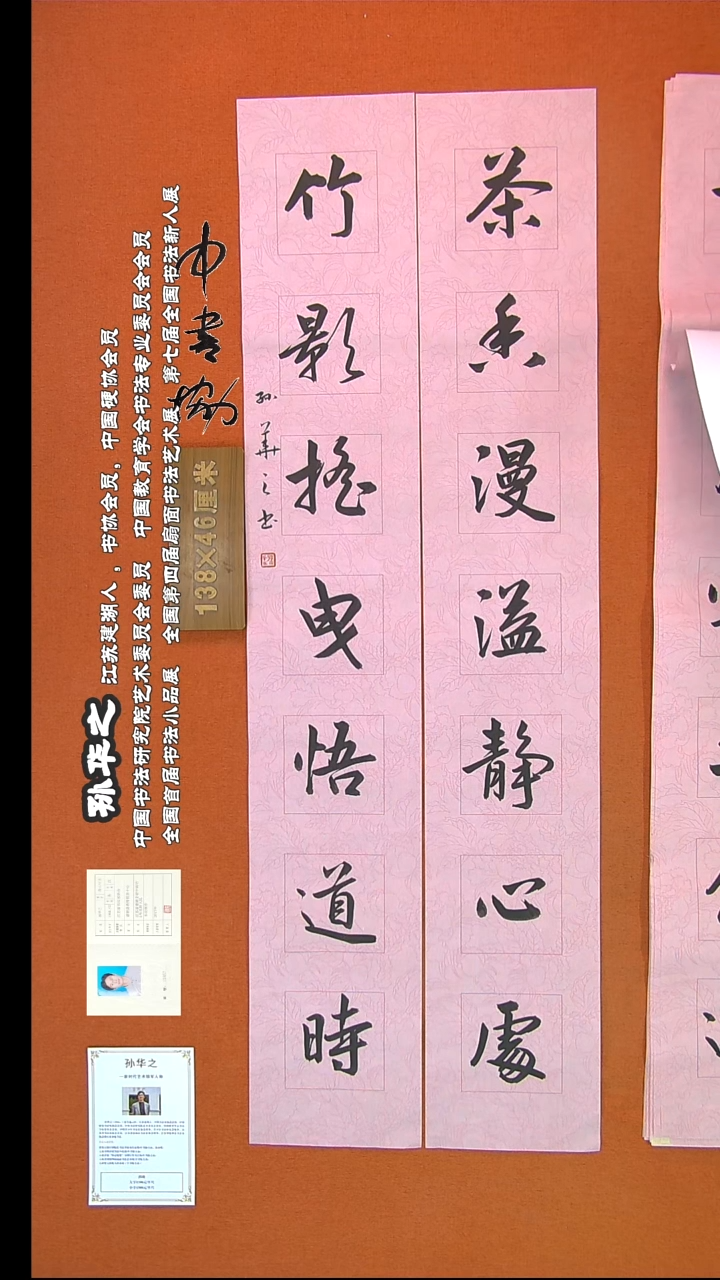 茶香漫溢静心處
竹影搖曳悟道時
孙華之书
中书协
138×46厘米
孙华之 江苏建湖人，书协会员，中国硬协会员
中国书法研究院艺术委员会委员 中国教育学会书法专业委员会会员
全国首届书法小品展 全国第四届扇面书法艺术展 第七届全国书法新人展
孙华之